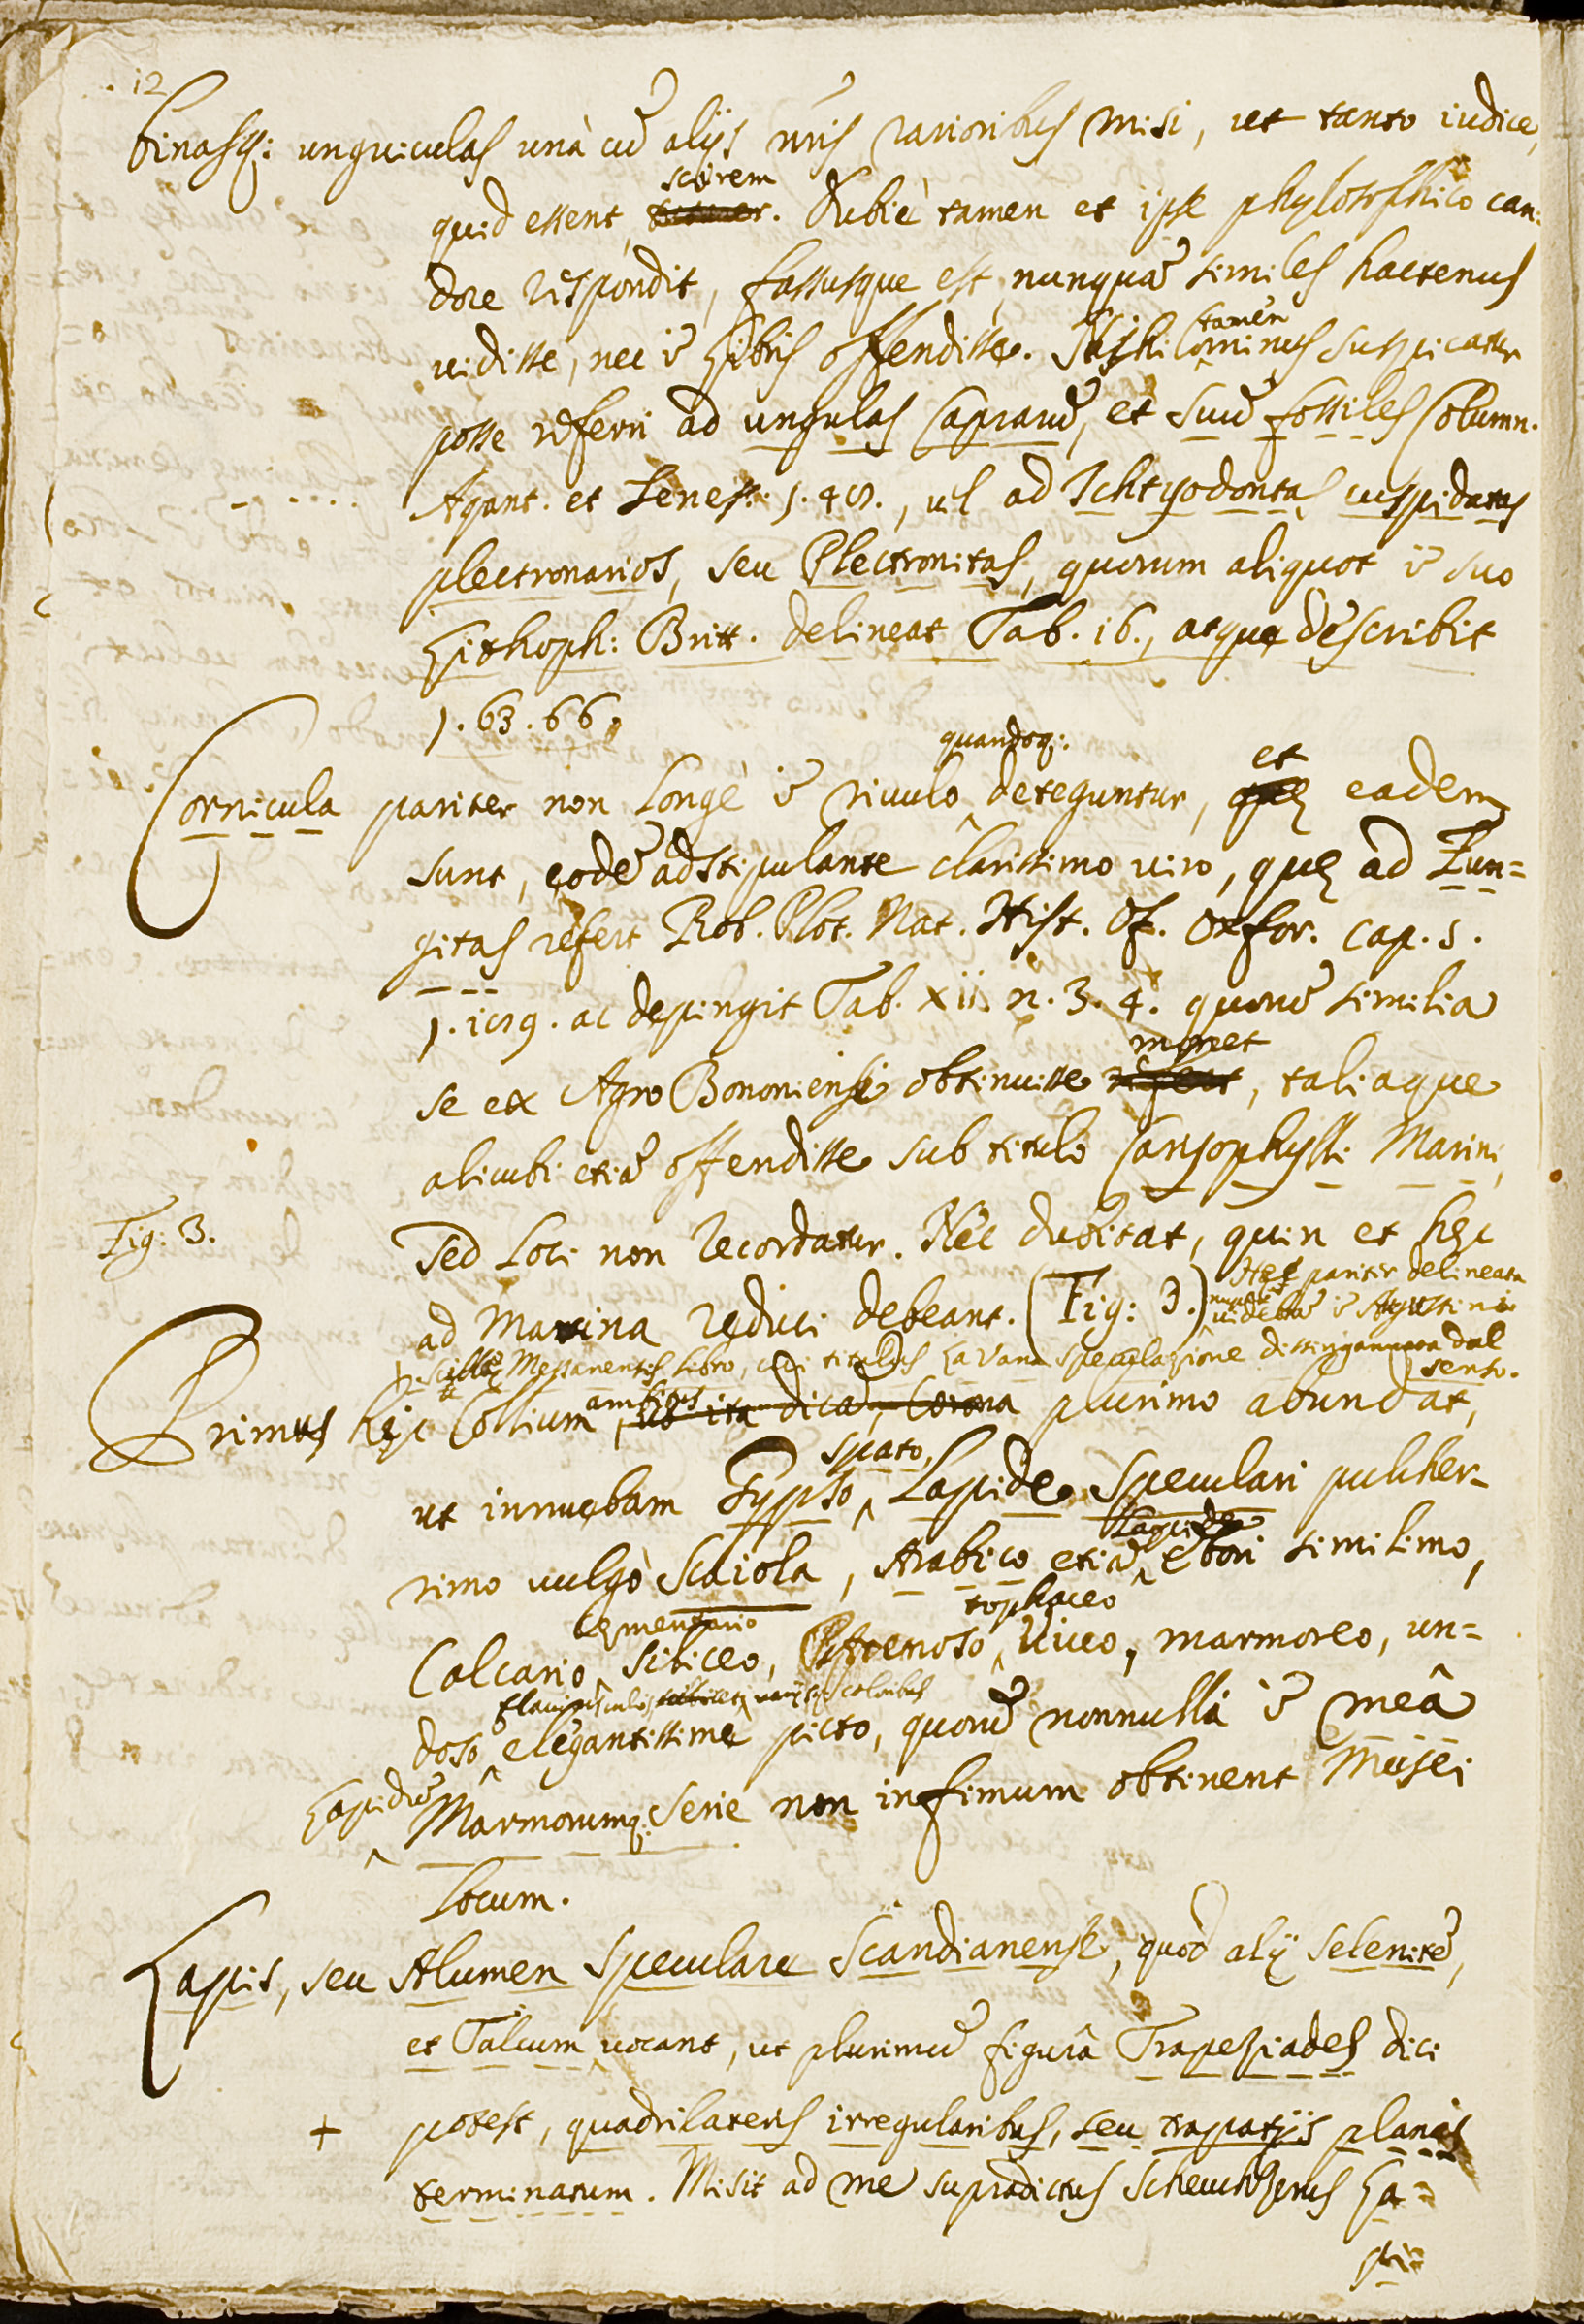 12
binasq: unguiculas unà cũ alijs nr̃is rarioribus misi, ut tanto iudice,
scirem
quid essent, . Dubiè tamen et ipse phylosophico can:
dore respondit, fassusque est, nunquã similes hactenus
tamen
uidisse, nec ĩ Libris offendisse. Nihilominus suspicatur
posse referri ad ungulas Caprarũ, et Suũ fossiles Column.
Aquat. et Terrest. p. , ul ad Ichtyodontas cuspidatas
plectronarios, seu Plectronitas, quorum aliquot ĩ suo
Lithoph: Britt. delineat Tab. 16., atque describit
p. 63. 66.
quandoq:
Cornicula pariter non longè ĩ riuulo deteguntur, et eadem
sunt, eodẽ adstipulante clarissimo uiro, quę ad Fun=
gitas refert Rob. Plot. Nat. Hist. Of. Oxfor. cap. 5.
p. 139. ac depingit Tab. xiii. n. 3. 4. quorũ similia
monet
se ex Agro Bononiensi obtinuisse , taliaque
alicubi etiã offendisse sub titulo Caryophylli Marini,
Fig: 3.
sed loci non recordatur. Nec dubitat, quin et hęc
Hęc pariter delineata
ad Marina reduci debeant. (Fig: 3.) nuper uidebã ĩ Agustini
Scillę Messanensis libro, cui titulus La Vana speculazione dissingannata dal
senso.
ambitus
Primus hic Collium, ut ita dicã, Corona plurimo abundat,
spato,
ut innuebam Gypso, Lapide Speculari pulcher-
Lapide
rimo uulgò Scaiola, Arabico etiã Ebori similimo,
cęmentario tophaceo
Calcario, siliceo, Pyritenoso, Uiuo, marmoreo, un=
uarijsq coloribus
doso elegantissime picto, quorũ nonnulla ĩ meâ
Lapidũ
Marmorumq: Serie non infimum obtinent Musei
Locum.
Lapis, seu Alumen Speculare Scandianense, quod alij Selenitẽ,
et Talcum uocant, ut plurimũ figurâ Trapeziades dici
+ potest, quadrilateris irregularibus, seu trapatijs planis
terminatum. Misit ad me supradictus Scheuchzerus La=
pi=